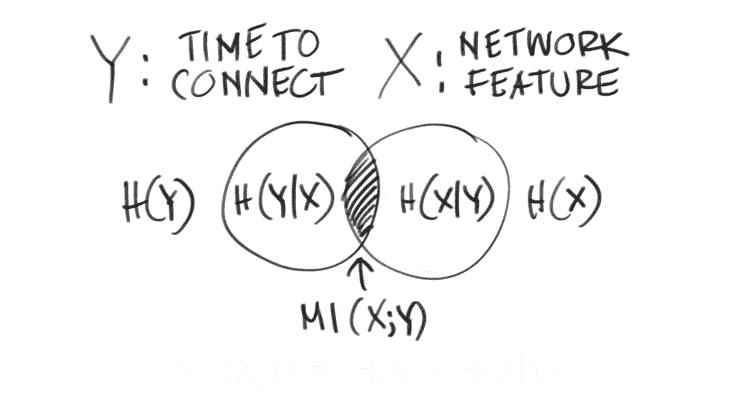 Y: TIME TO CONNECT
X: NETWORK FEATURE
H(Y) H(Y|X) H(X|Y) H(X)
MI(X;Y)